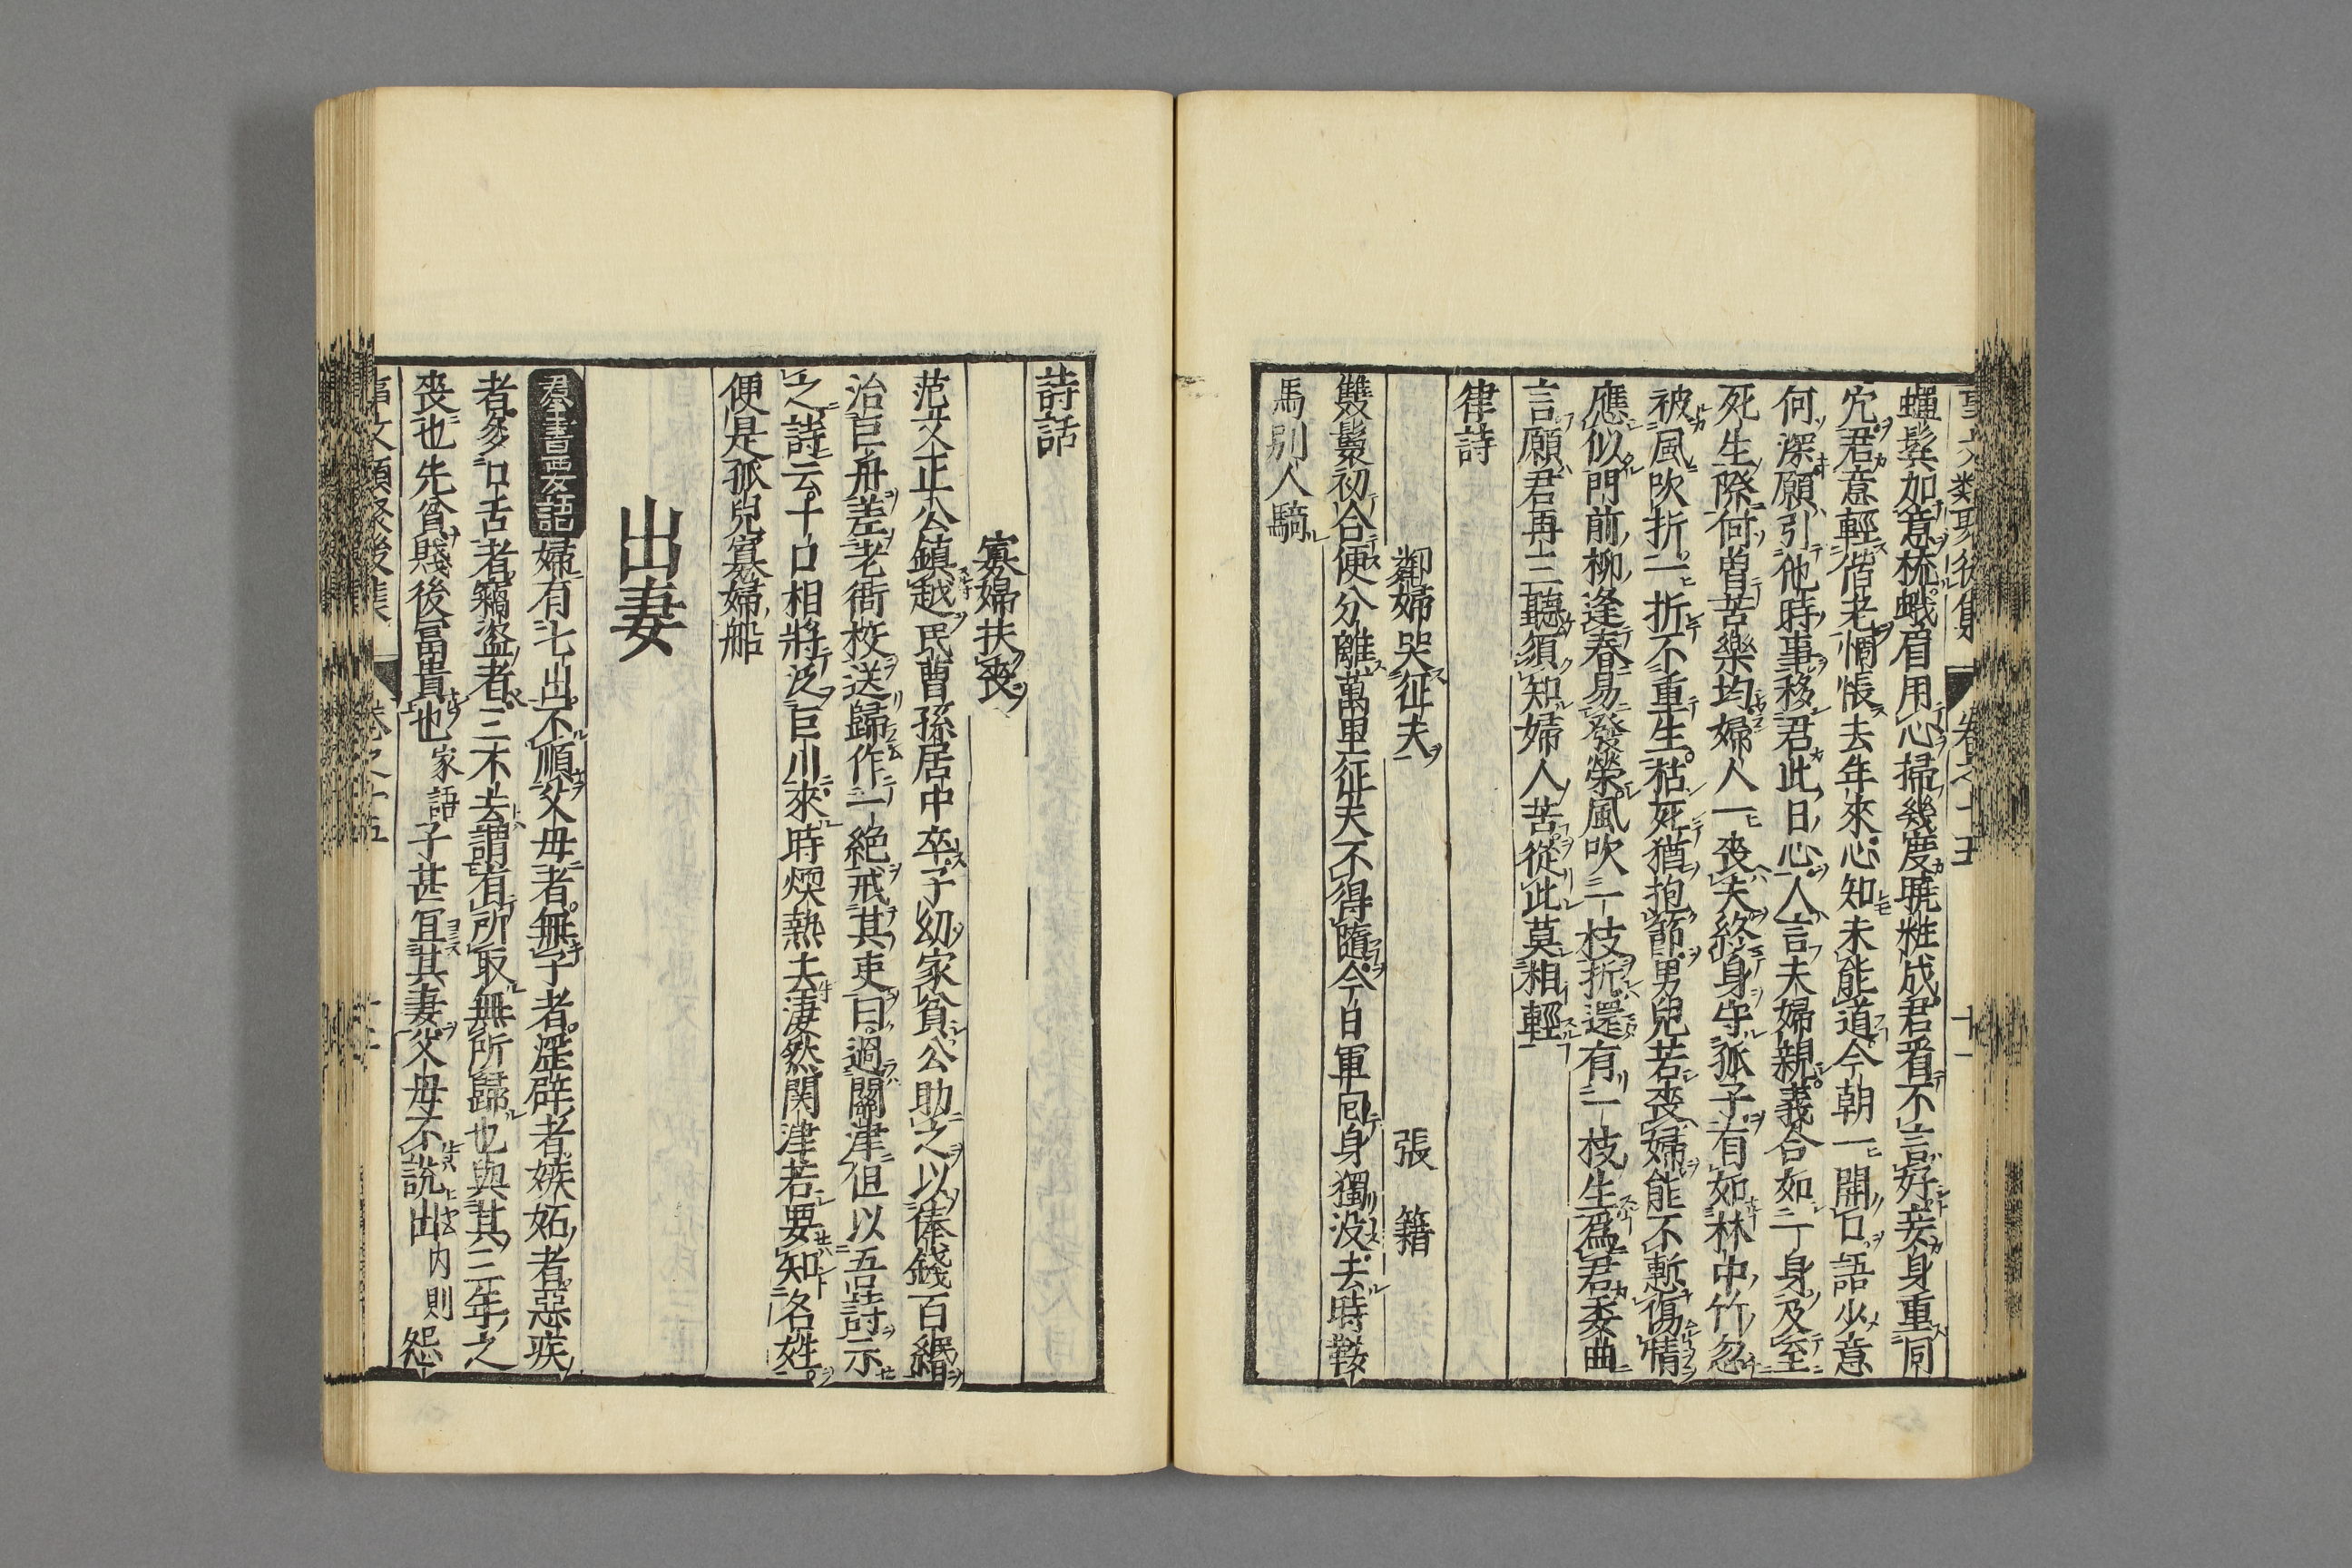 事文類聚後集 卷之十五 十一
蟬鬂加意梳蛾眉用心掃幾度曉粧成君看不言好妾身重同
穴君意輕偕老惆悵去年來心知未能道今朝一開口語少意
何深願引他時事移君此日心人言夫婦親義合如一身及至
死生際何曽苦樂均婦人一喪夫終身守孤子有如林中竹忽
被風吹折一折不重生枯死猶抱節男兒若喪婦能不暫傷情
應似門前柳逢春易發榮風吹一枝折還有一枝生爲君委曲
言願君再三聽須知婦人苦從此莫相輕
律詩
鄰婦哭征夫 張籍
雙鬟初合便分離萬里征夫不得隨今日軍回身獨没去時鞍
馬别人騎
詩話
寡婦扶喪
范文正公鎮越民曹孫居中卒子幼家貧公助之以俸錢百緡
治巨舟差老衙校送歸作一絶戒其吏曰過關津但以吾詩示
之詩云十口相將泛巨川來時煖熱去凄然関津若要知名姓
便是孤兒寡婦船
出妻
羣書要語記婦有七出不順父母者無子者淫辟者嫉妬者惡疾
者多口舌者竊盗者三不去謂有所取無所歸也與其三年之
喪也先貧賤後冨貴也家語子甚冝其妻父母不說出内則怨
事文類聚後集 卷之十五